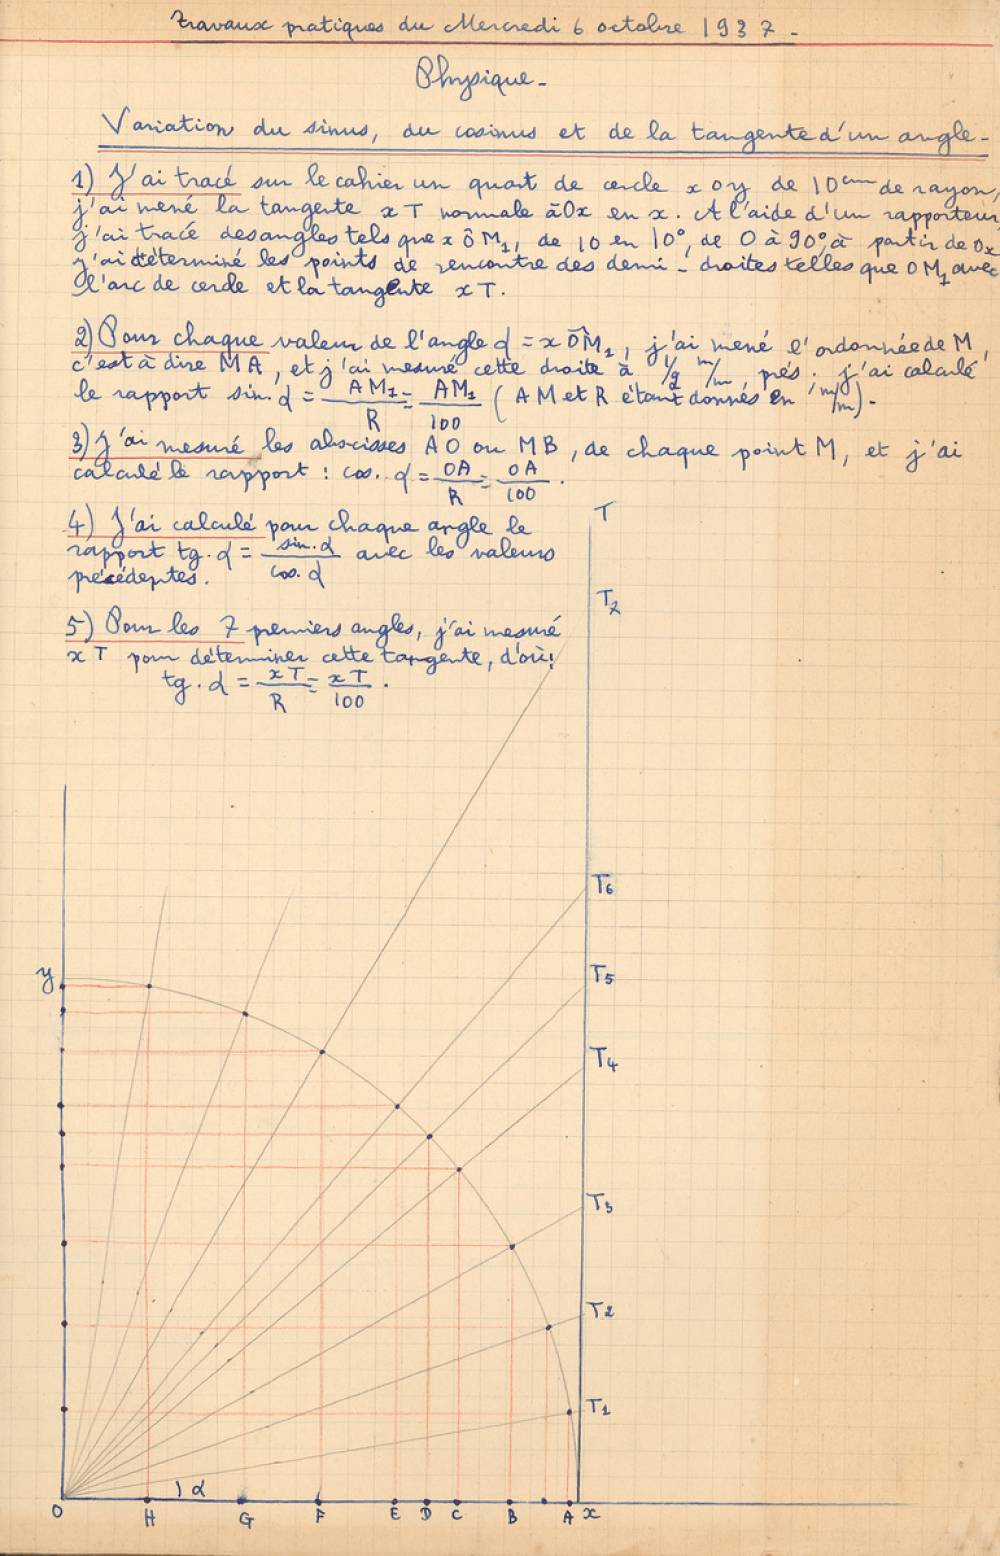 Travaux pratiques du Mercredi 6 octobre 1937.
Physique.
Variation du sinus, du cosinus et de la tangente d'un angle.
1) J'ai tracé sur le cahier un quart de cercle x o y de 10cm de rayon,
j'ai mené la tangente xT normale à Ox en x. A l'aide d'un rapporteur,
j'ai tracé des angles tels que x ô M1, de 10 en 10°, de 0 à 90°, à partir de Ox
j'ai déterminé les points de rencontre des demi-droites telles que OM1 avec
l'arc de cercle et la tangente xT.
2) Pour chaque valeur de l'angle α = x ÔM1, j'ai mené l'ordonnée de M,
c'est à dire MA, et j'ai mesuré cette droite à 1/2 m/m près. j'ai calculé
le rapport sin. α = AM1/R = AM1/100 (AM et R étant donnés en m/m).
3) J'ai mesuré les abscisses AO ou MB, de chaque point M, et j'ai
calculé le rapport : cos. α = OA/R = OA/100.
4) J'ai calculé pour chaque angle le
rapport tg. α = sin. α/cos. α avec les valeurs
précédentes.
5) Pour les 7 premiers angles, j'ai mesuré
xT pour déterminer cette tangente, d'où:
tg. α = xT/R = xT/100.
T
T7
T6
T5
T4
T3
T2
T1
y
α
O H G F E D C B A x